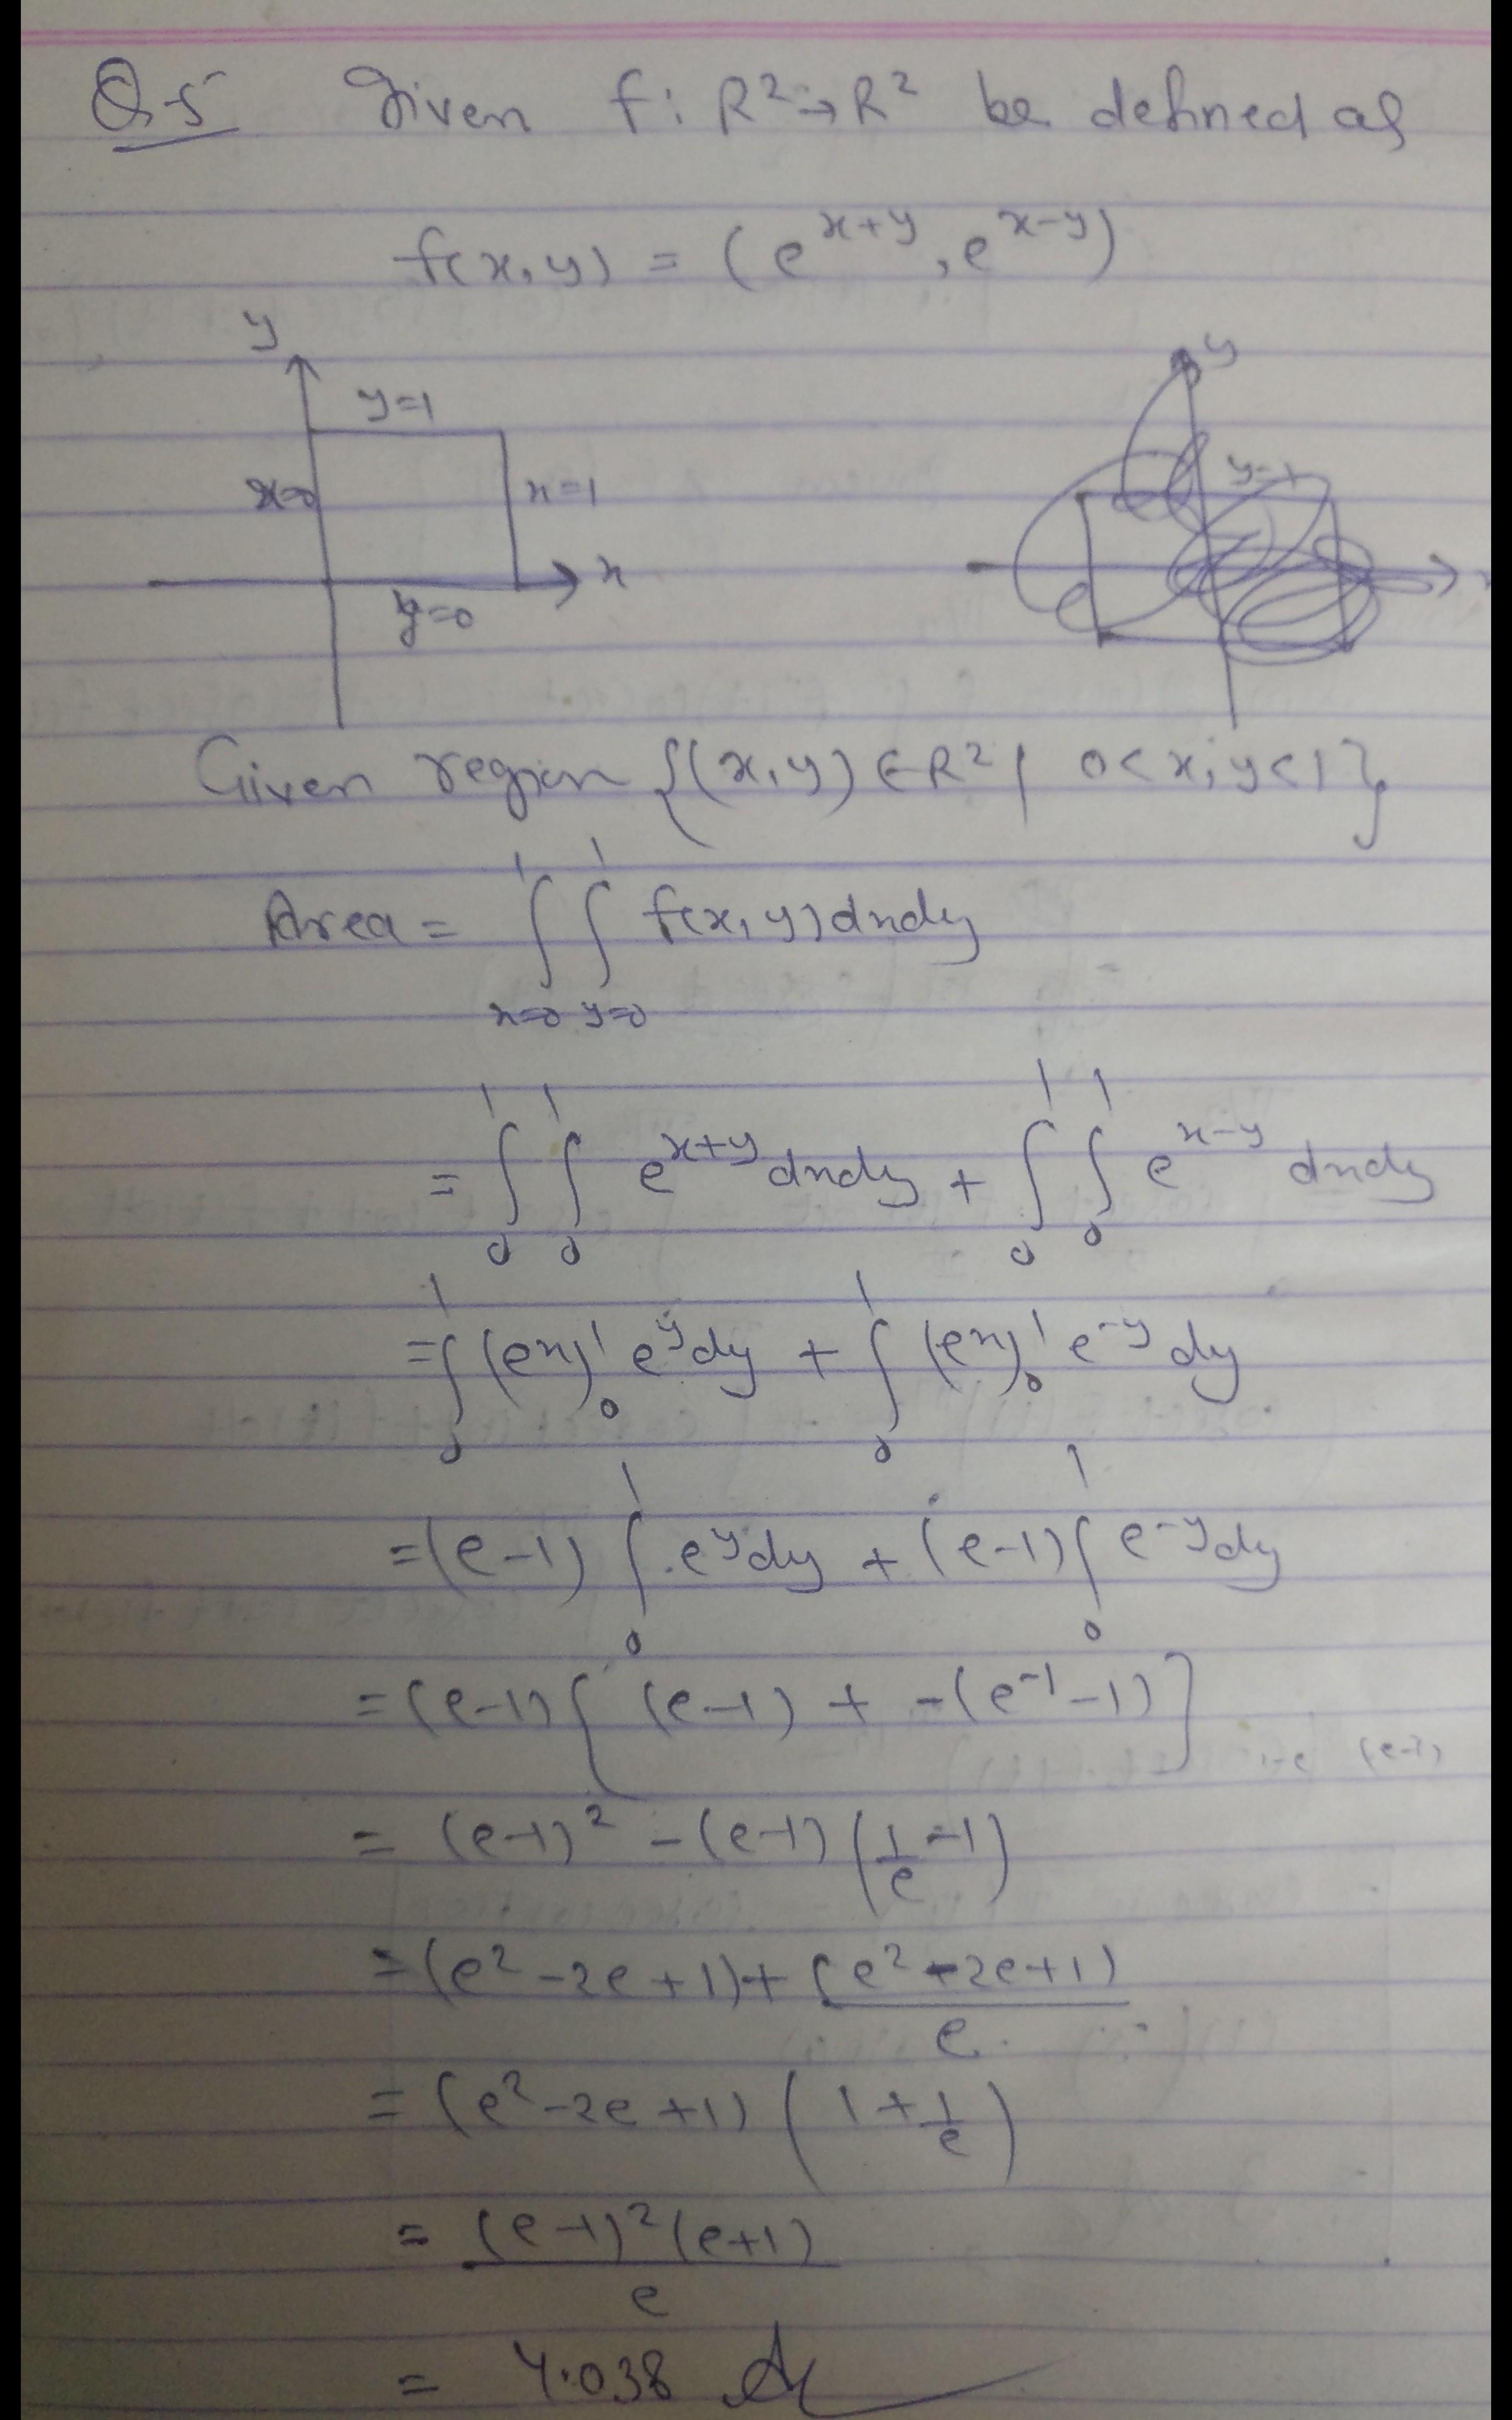 Q-5 Given f: R² → R² be defined as
f(x,y) = (e^{x+y}, e^{x-y})
y
y
y=1
x=0
x=1
x
y=0
Given region {(x,y) ∈ R² | 0<x,y<1}
Area = ∫_{x=0}^{1} ∫_{y=0}^{1} f(x,y) dxdy
= ∫_0^1 ∫_0^1 e^{x+y} dxdy + ∫_0^1 ∫_0^1 e^{x-y} dxdy
= ∫_0^1 (e^x)_0^1 e^y dy + ∫_0^1 (e^x)_0^1 e^{-y} dy
= (e-1) ∫_0^1 e^y dy + (e-1) ∫_0^1 e^{-y} dy
= (e-1) [ (e-1) + -(e^{-1} -1) ]
= (e-1)² - (e-1) (1/e -1)
= (e² -2e +1) + (e² -2e+1)/e
= (e² -2e +1) (1 + 1/e)
= (e-1)² (e+1)/e
= 4.038